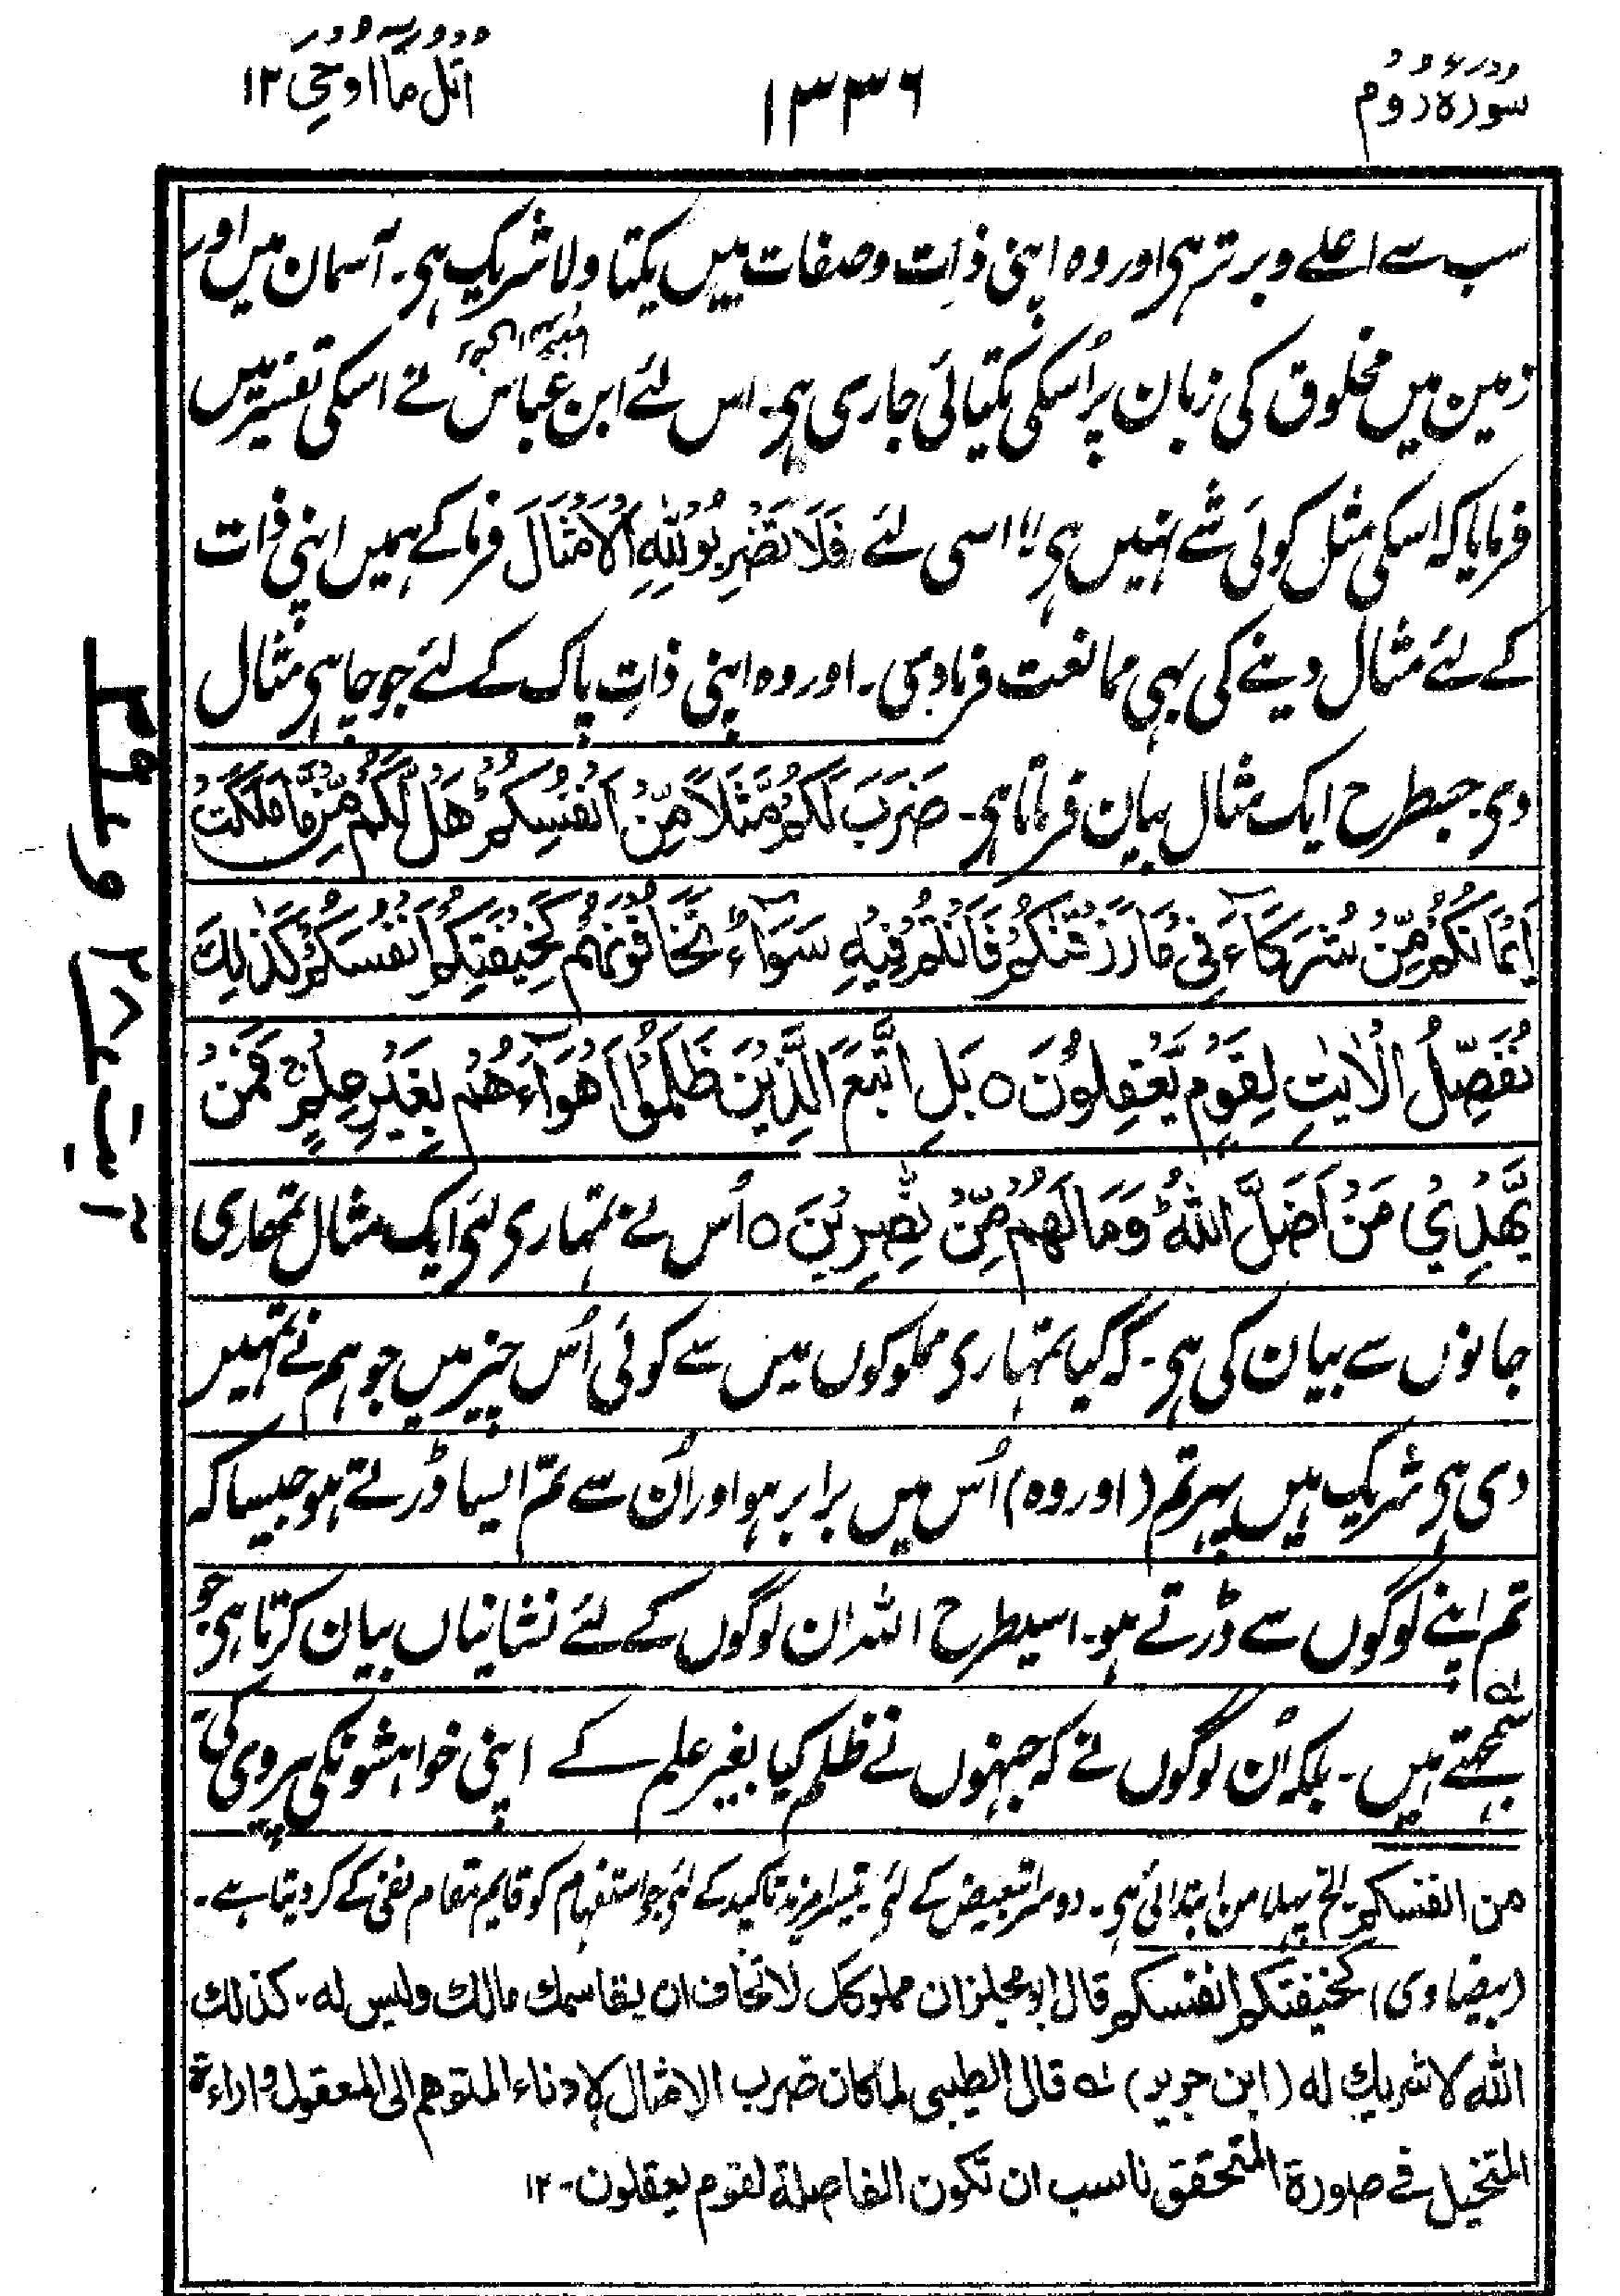 سُوْرَۃُ رُوْم
۱۳۳۶
اُتْلُ مَآ اُوْحِیَ ۱۲
سب سے اعلے و برتر ہی اور وہ اپنی ذات وصفات میں یکتا ولا شریک ہی۔ آسمان میں اور
زمین میں مخلوق کی زبان پر اُسکی یکتائی جاری ہی۔ اس لئے ابن عباس نے اسکی تفسیر میں
فرمایا کہ اسکی مثل کوئی شے نہیں ہی" اسی لئے فَلَا تَضْرِبُوْ لِلّٰہِ الْاَمْثَالَ فرما کے ہمیں اپنی ذات
کے لئے مثال دینے کی بہی ممانعت فرمادی۔ اور وہ اپنی ذاتِ پاک کے لئے جو چاہی مثال
دی۔ جسطرح ایک مثال بیان فرماتا ہی۔ ضَرَبَ لَکُمْ مَّثَلًا مِّنْ اَنْفُسِکُمْ ؕ هَلْ لَّکُمْ مِّنْ مَّا مَلَکَتْ
اَیْمَانُکُمْ مِّنْ شُرَکَآءَ فِیْ مَا رَزَقْنٰکُمْ فَاَنْتُمْ فِیْهِ سَوَآءٌ تَخَافُوْنَهُمْ کَخِیْفَتِکُمْ اَنْفُسَکُمْ ؕ کَذٰلِكَ
نُفَصِّلُ الْاٰیٰتِ لِقَوْمٍ یَّعْقِلُوْنَ ○ بَلِ اتَّبَعَ الَّذِیْنَ ظَلَمُوْۤا اَهْوَآءَهُمْ بِغَیْرِ عِلْمٍ ۚ فَمَنْ
یَّهْدِیْ مَنْ اَضَلَّ اللّٰهُ ؕ وَمَا لَهُمْ مِّنْ نّٰصِرِیْنَ ○ اُس نے تمہاری لئی ایک مثال تمھاری
جانوں سے بیان کی ہی۔ کہ کیا تمہاری مملوکوں میں سے کوئی اُس چیز میں جو ہم نے تمہیں
دی ہی شریک ہیں پہر تم (اور وہ) اُس میں برابر ہو اور اُن سے تم ایسا ڈرتے ہو جیسا کہ
تم اپنے لوگوں سے ڈرتے ہو۔ اسیطرح اللہ ان لوگوں کے لئے نشانیاں بیان کرتا ہی جو
سمجھتے ہیں۔ بلکہ اُن لوگوں نے کہ جنہوں نے ظلم کیا بغیر علم کے اپنی خواہشونکی پیروی کی
من انفسکم۔ الخ پہلا من ابتدائی ہی۔ دوسرا تبعیض کے لئی۔ تیسرا مزید تاکید کے لئی جو استفہام کو قایم مقام نفی کے کر دیتا ہے۔
(بیضاوی) کخیفتکم انفسکم قال ابو مجلز ان مملوکک لا تخاف ان یقاسمك مالك ولیس له۔ کذلك
الله لا شریك له (ابن جریر) ۱ قال الطیبی لما کان ضرب الامثال لادناء المتوهم الی المعقول واراءة
المتخیل فے صورة المتحقق ناسب ان تکون الفاصلة لقوم یعقلون۔ ۱۲
آیت ۲۸ و ۲۹